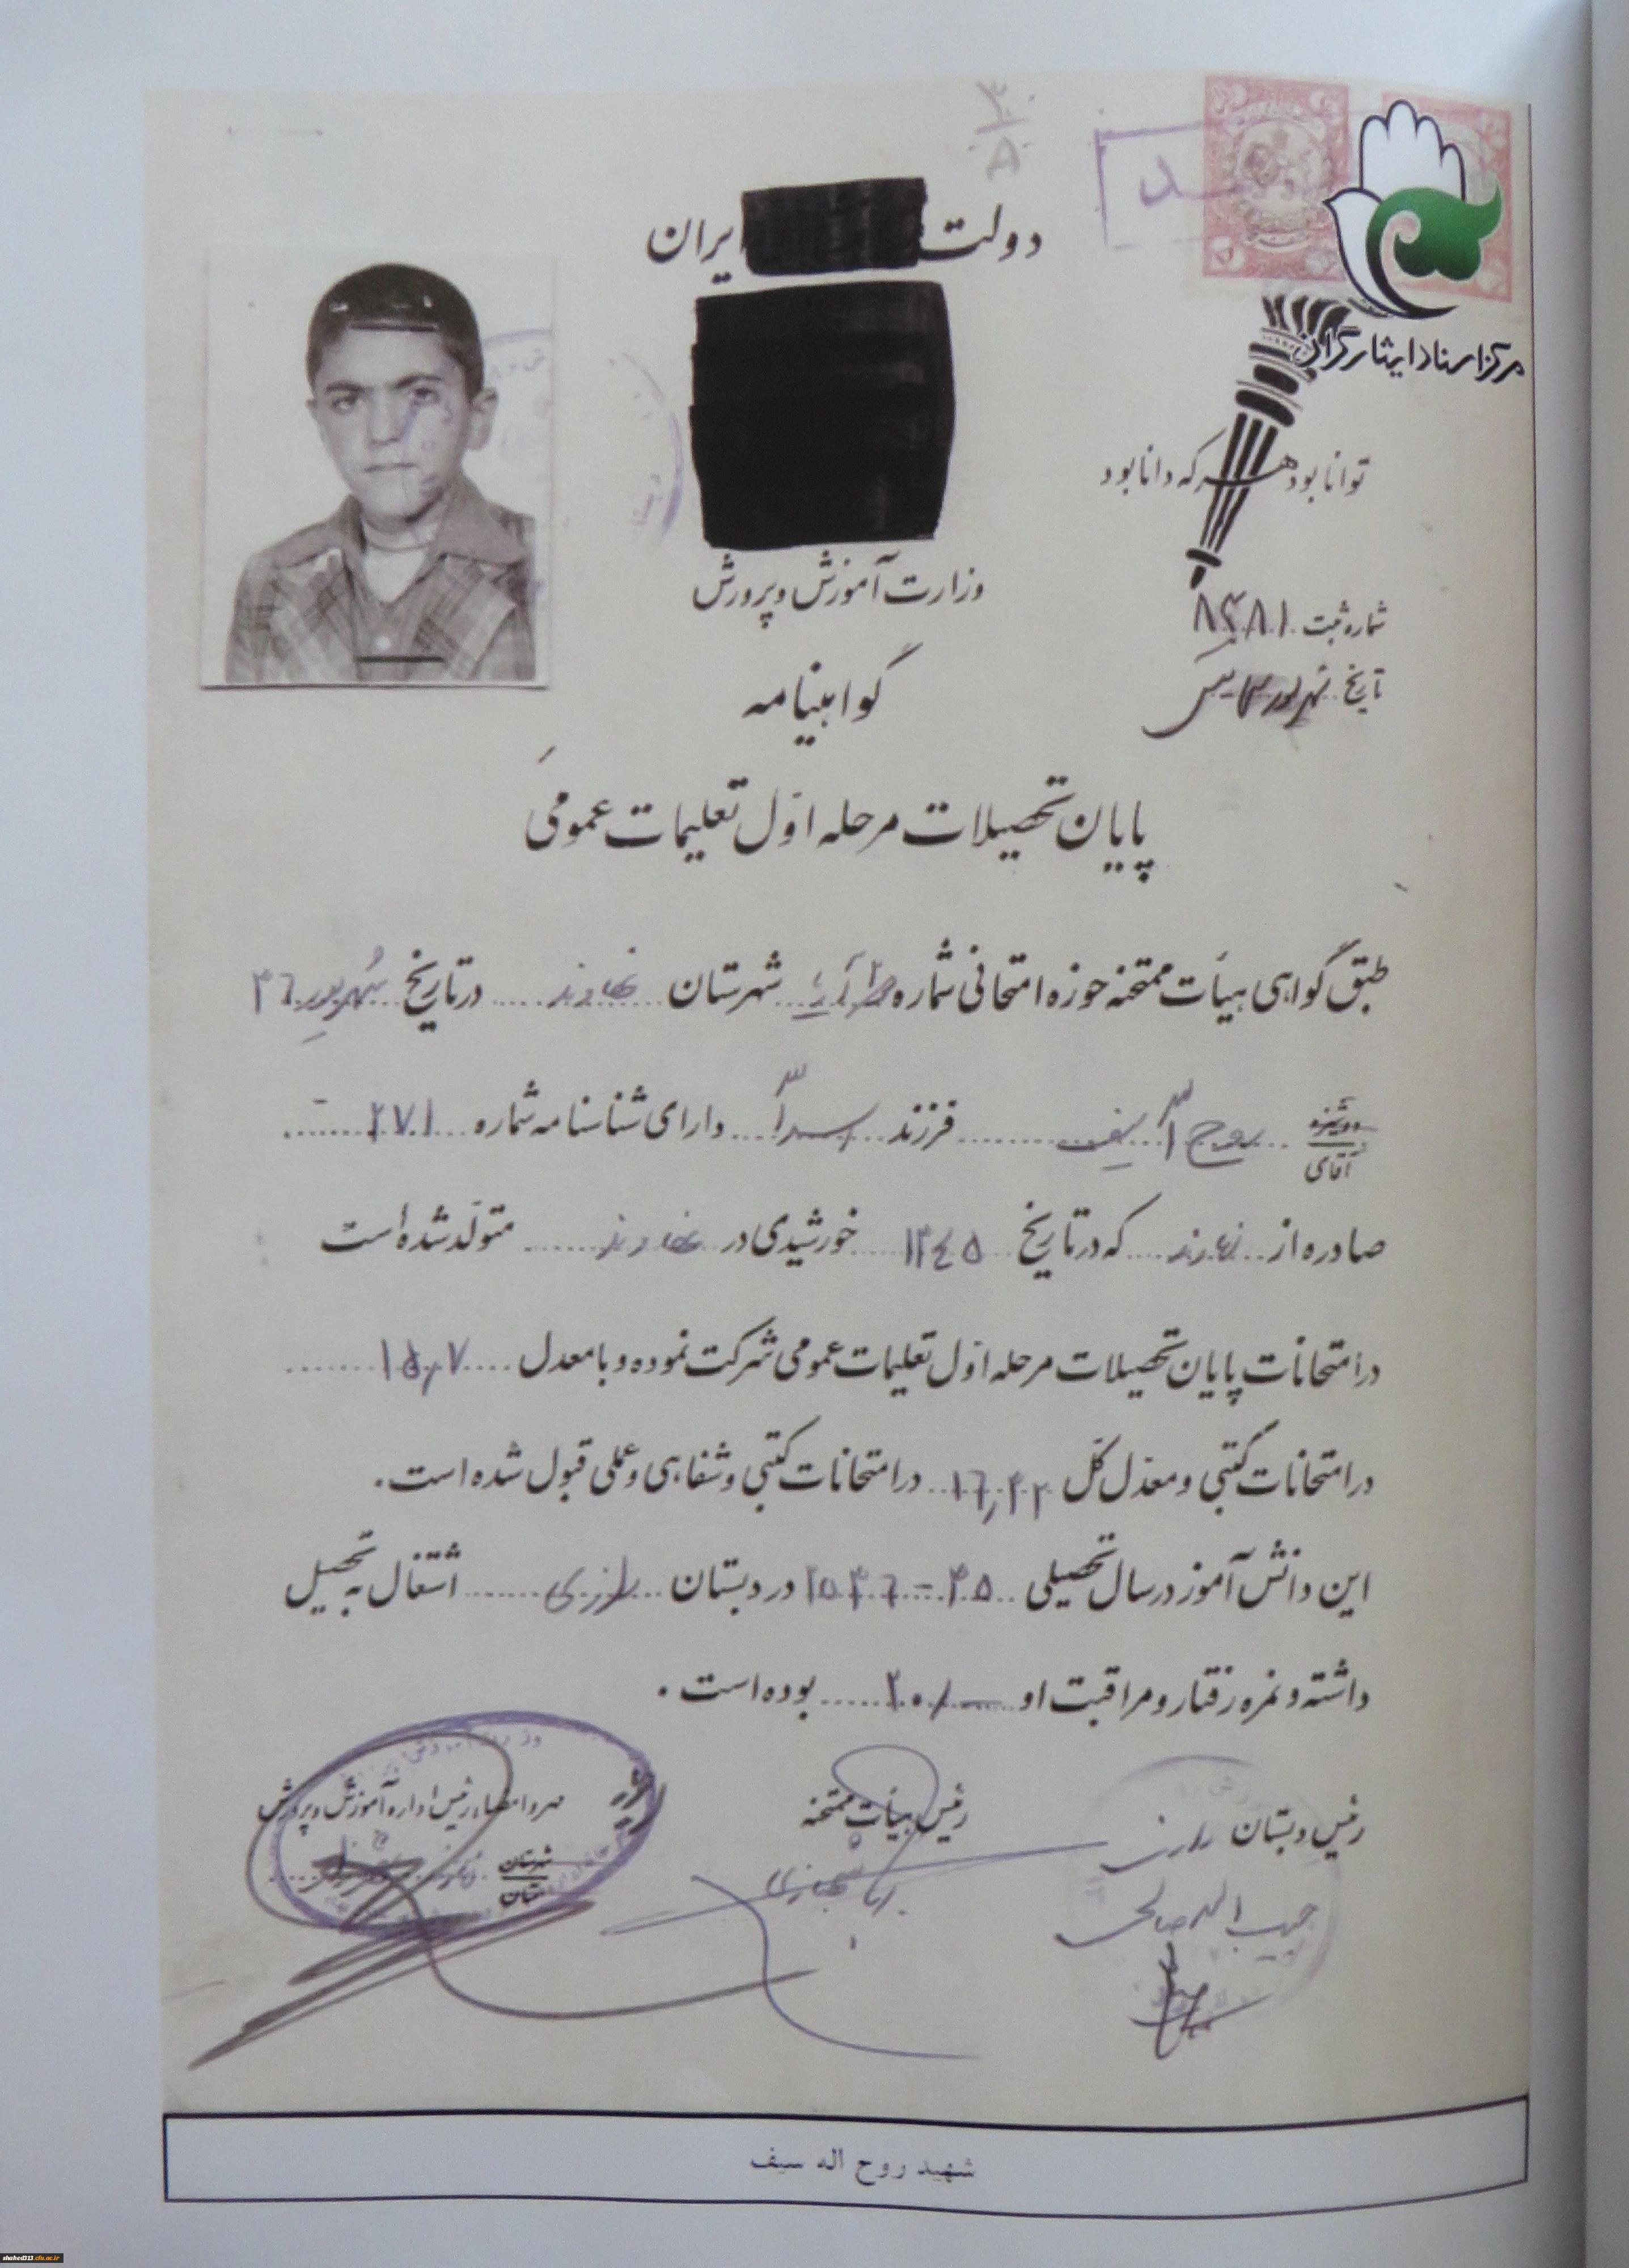 دولت ایران
مرکز اسناد ایثارگران
توانا بود هر که دانا بود
وزارت آموزش و پرورش
شماره ثبت
تاریخ
گواهینامه
پایان تحصیلات مرحله اول تعلیمات عمومی
طبق گواهی هیأت ممتحنه حوزه امتحانی شماره شهرستان نهاوند در تاریخ شهریور ۳۶
دوشیزه
آقای
روح اله سیف فرزند اسداله دارای شناسنامه شماره ۲۷۱
صادره از نهاوند که در تاریخ ۱۳۴۵ خورشیدی در نهاوند متولد شده است
در امتحانات پایان تحصیلات مرحله اول تعلیمات عمومی شرکت نموده و با معدل ۱۵٫۷
در امتحانات کتبی و معدل کل ۱۶٫۴۲ در امتحانات کتبی و شفاهی و عملی قبول شده است.
این دانش آموز در سال تحصیلی ۳۵ - ۲۵۳۶ در دبستان رازی اشتغال به تحصیل
داشته و نمره رفتار و مراقبت او ۲۰/— بوده است.
رئیس دبستان رازی
حبیب اله صالحی
رئیس هیأت ممتحنه
مهر و امضاء رئیس اداره آموزش و پرورش
شهرستان
استان
شهید روح اله سیف
shahed313.cfu.ac.ir